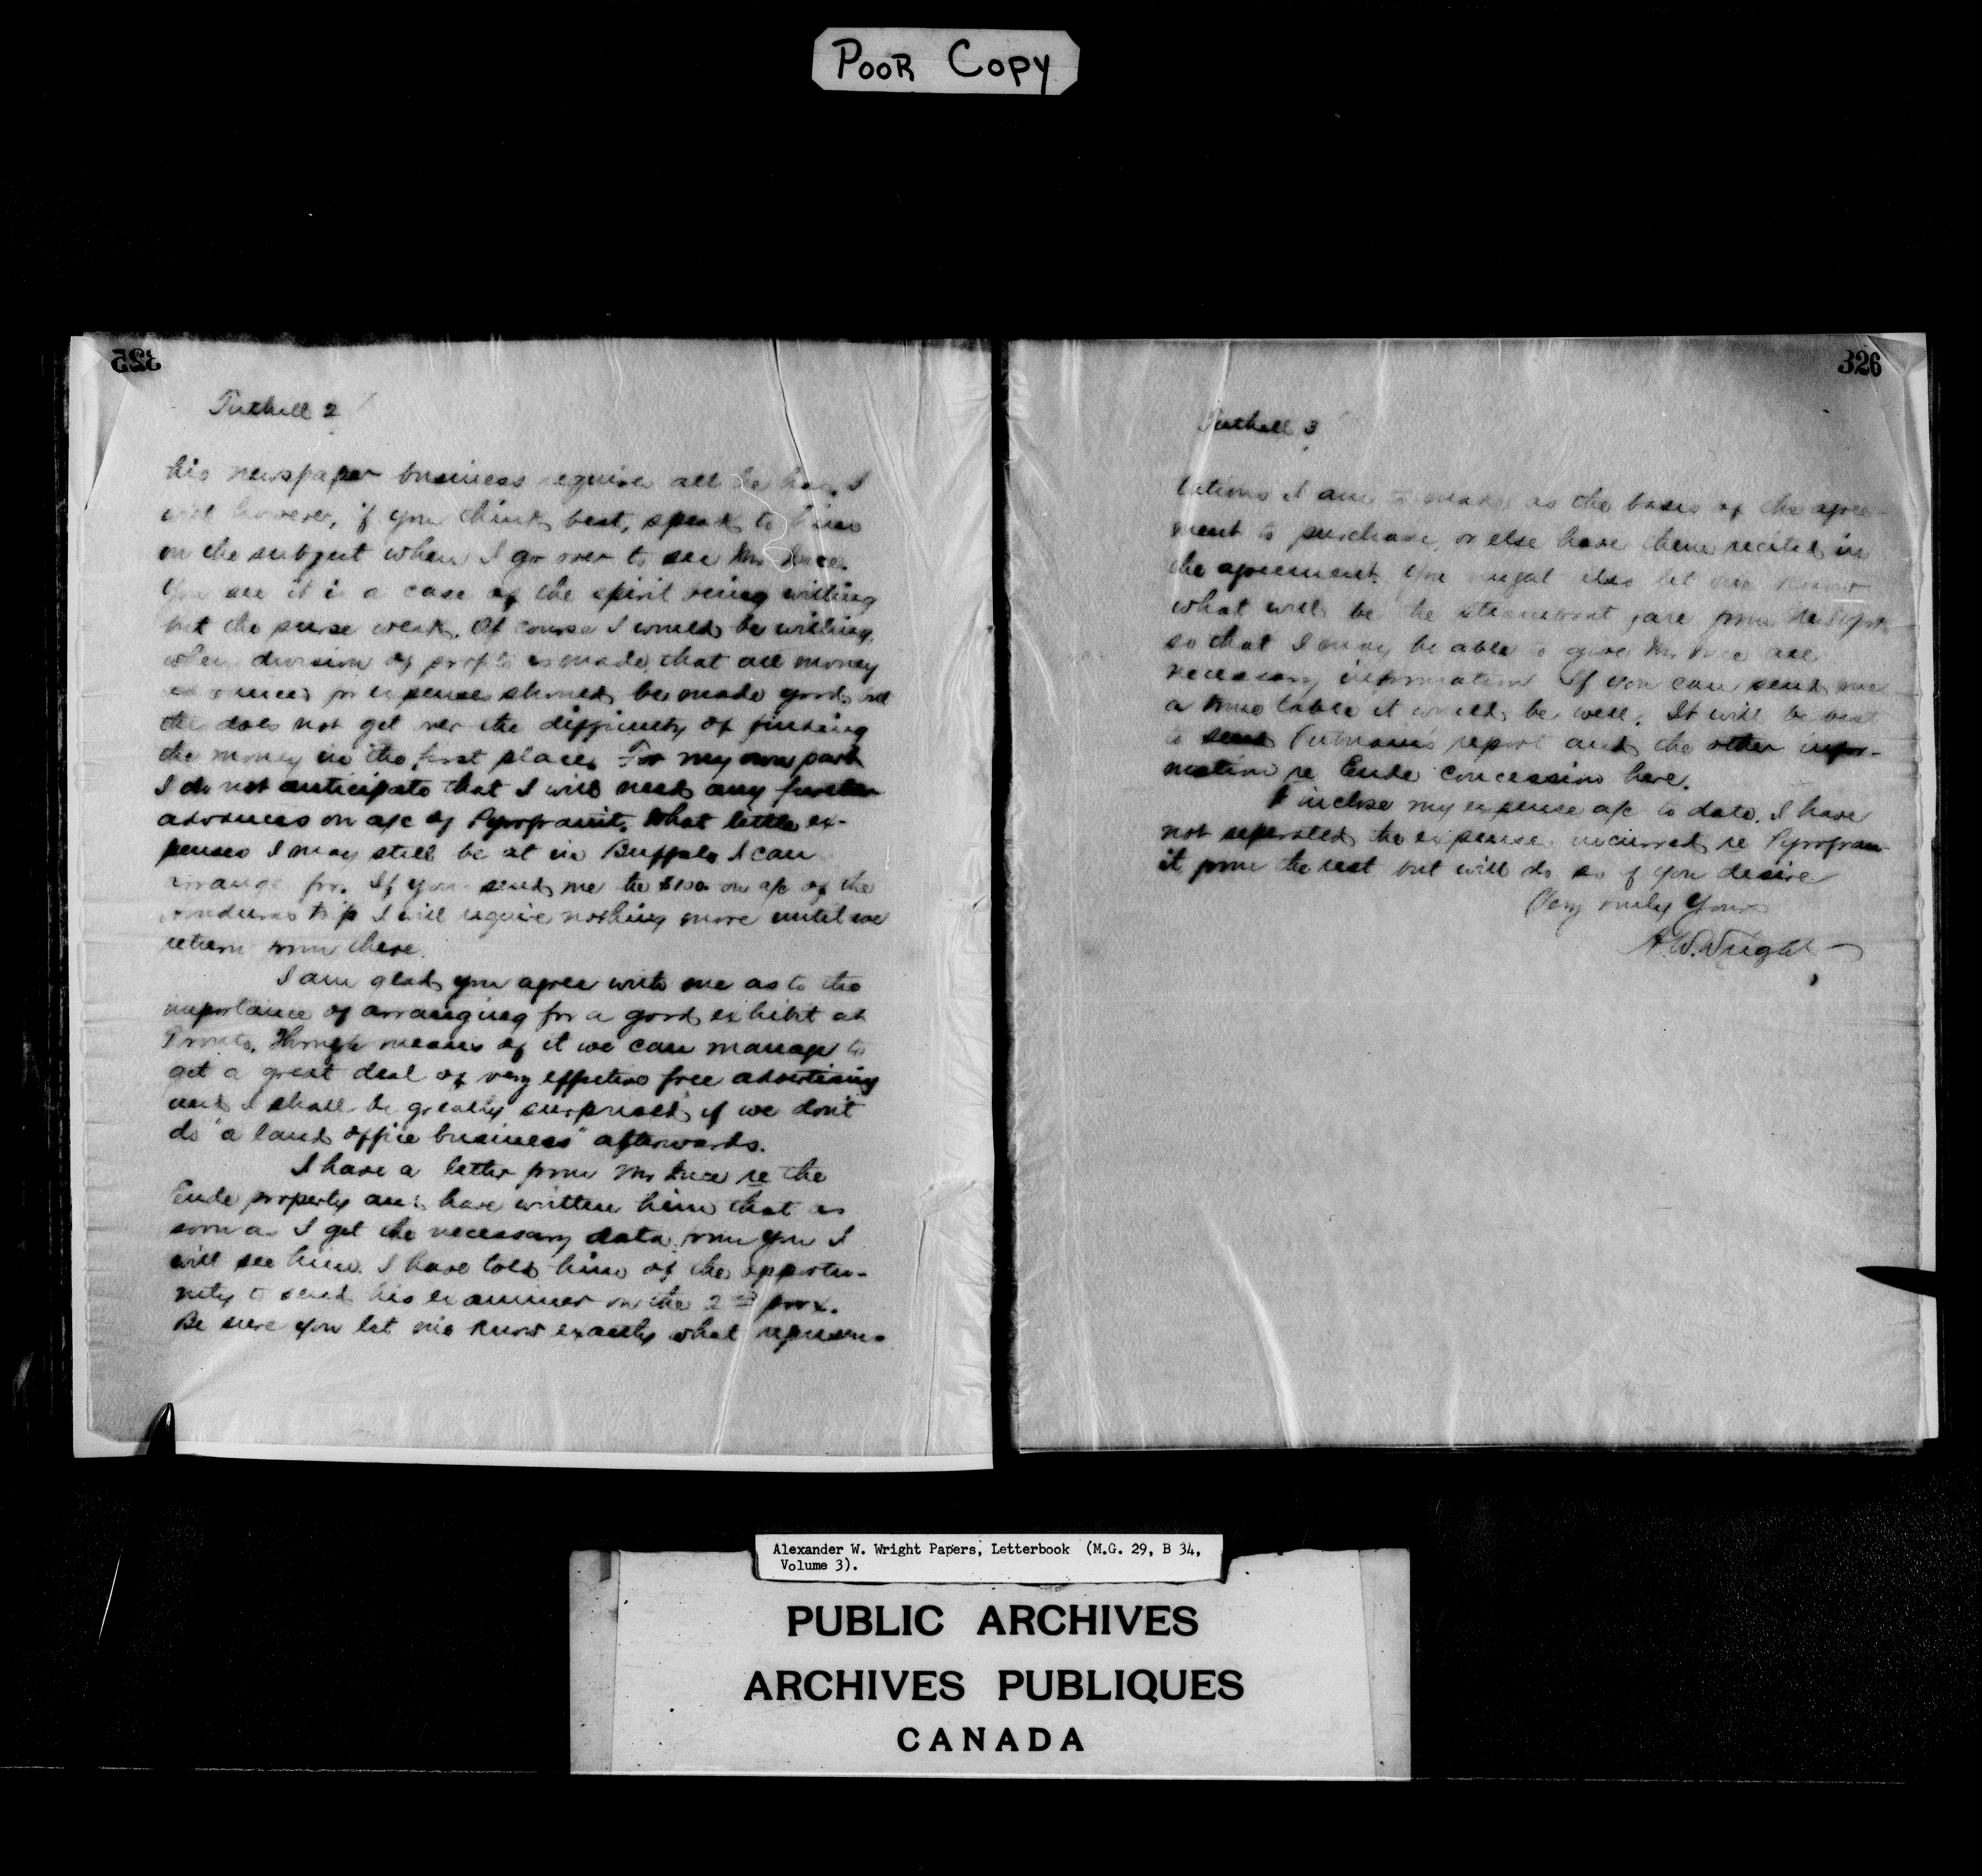 POOR COPY
325
Tuthill 2
his newspaper business requires all he has. I
will however, if you think best, speak to him
on the subject when I go over to see Mr Luce.
You see it is a case of the spirit being willing
but the purse weak. Of course I would be willing,
when division of profits is made that all money
advanced for expenses should be made good, but
this does not get over the difficulty of finding
the money in the first place. For my own part
I do not anticipate that I will need any further
advances on a/c of Pyrogranit. What little ex-
penses I may still be at in Buffalo I can
arrange for. If you send me the $100 on a/c of the
Honduras trip I will require nothing more until we
return from there.
I am glad you agree with me as to the
importance of arranging for a good exhibit at
Toronto. Through means of it we can manage to
get a great deal of very effective free advertising
and I shall be greatly surprised if we don't
do "a land office business" afterwards.
I have a letter from Mr Luce re the
Eude property and have written him that as
soon as I get the necessary data from you I
will see him. I have told him of the opportu-
nity to send his examiner on the 2nd prox.
Be sure you let me know exactly what represen-
326
Tuthill 3
tations I am to make as the basis of the agree-
ment to purchase, or else have them recited in
the agreement. You might also let me know
what will be the steamboat fare from
so that I may be able to give Mr Luce all
necessary information. If you can send me
a time table it would be well. It will be best
to send Putnam's report and the other infor-
mation re Eude concession here.
I inclose my expense a/c to date. I have
not seperated the expense incurred re Pyrogran-
it from the rest but will do so if you desire
Very truly Yours
A. W. Wright
Alexander W. Wright Papers, Letterbook (M.G. 29, B 34,
Volume 3).
PUBLIC ARCHIVES
ARCHIVES PUBLIQUES
CANADA